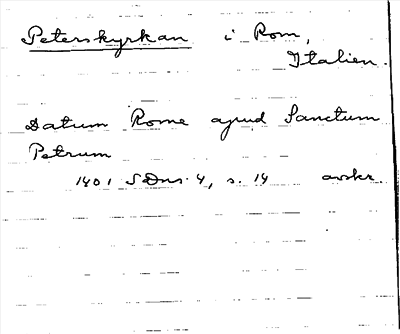 Peterskyrkan i Rom,
Italien.
Datum Rome apud Sanctum
Petrum
1401 SDns. 4, s. 14 avskr.